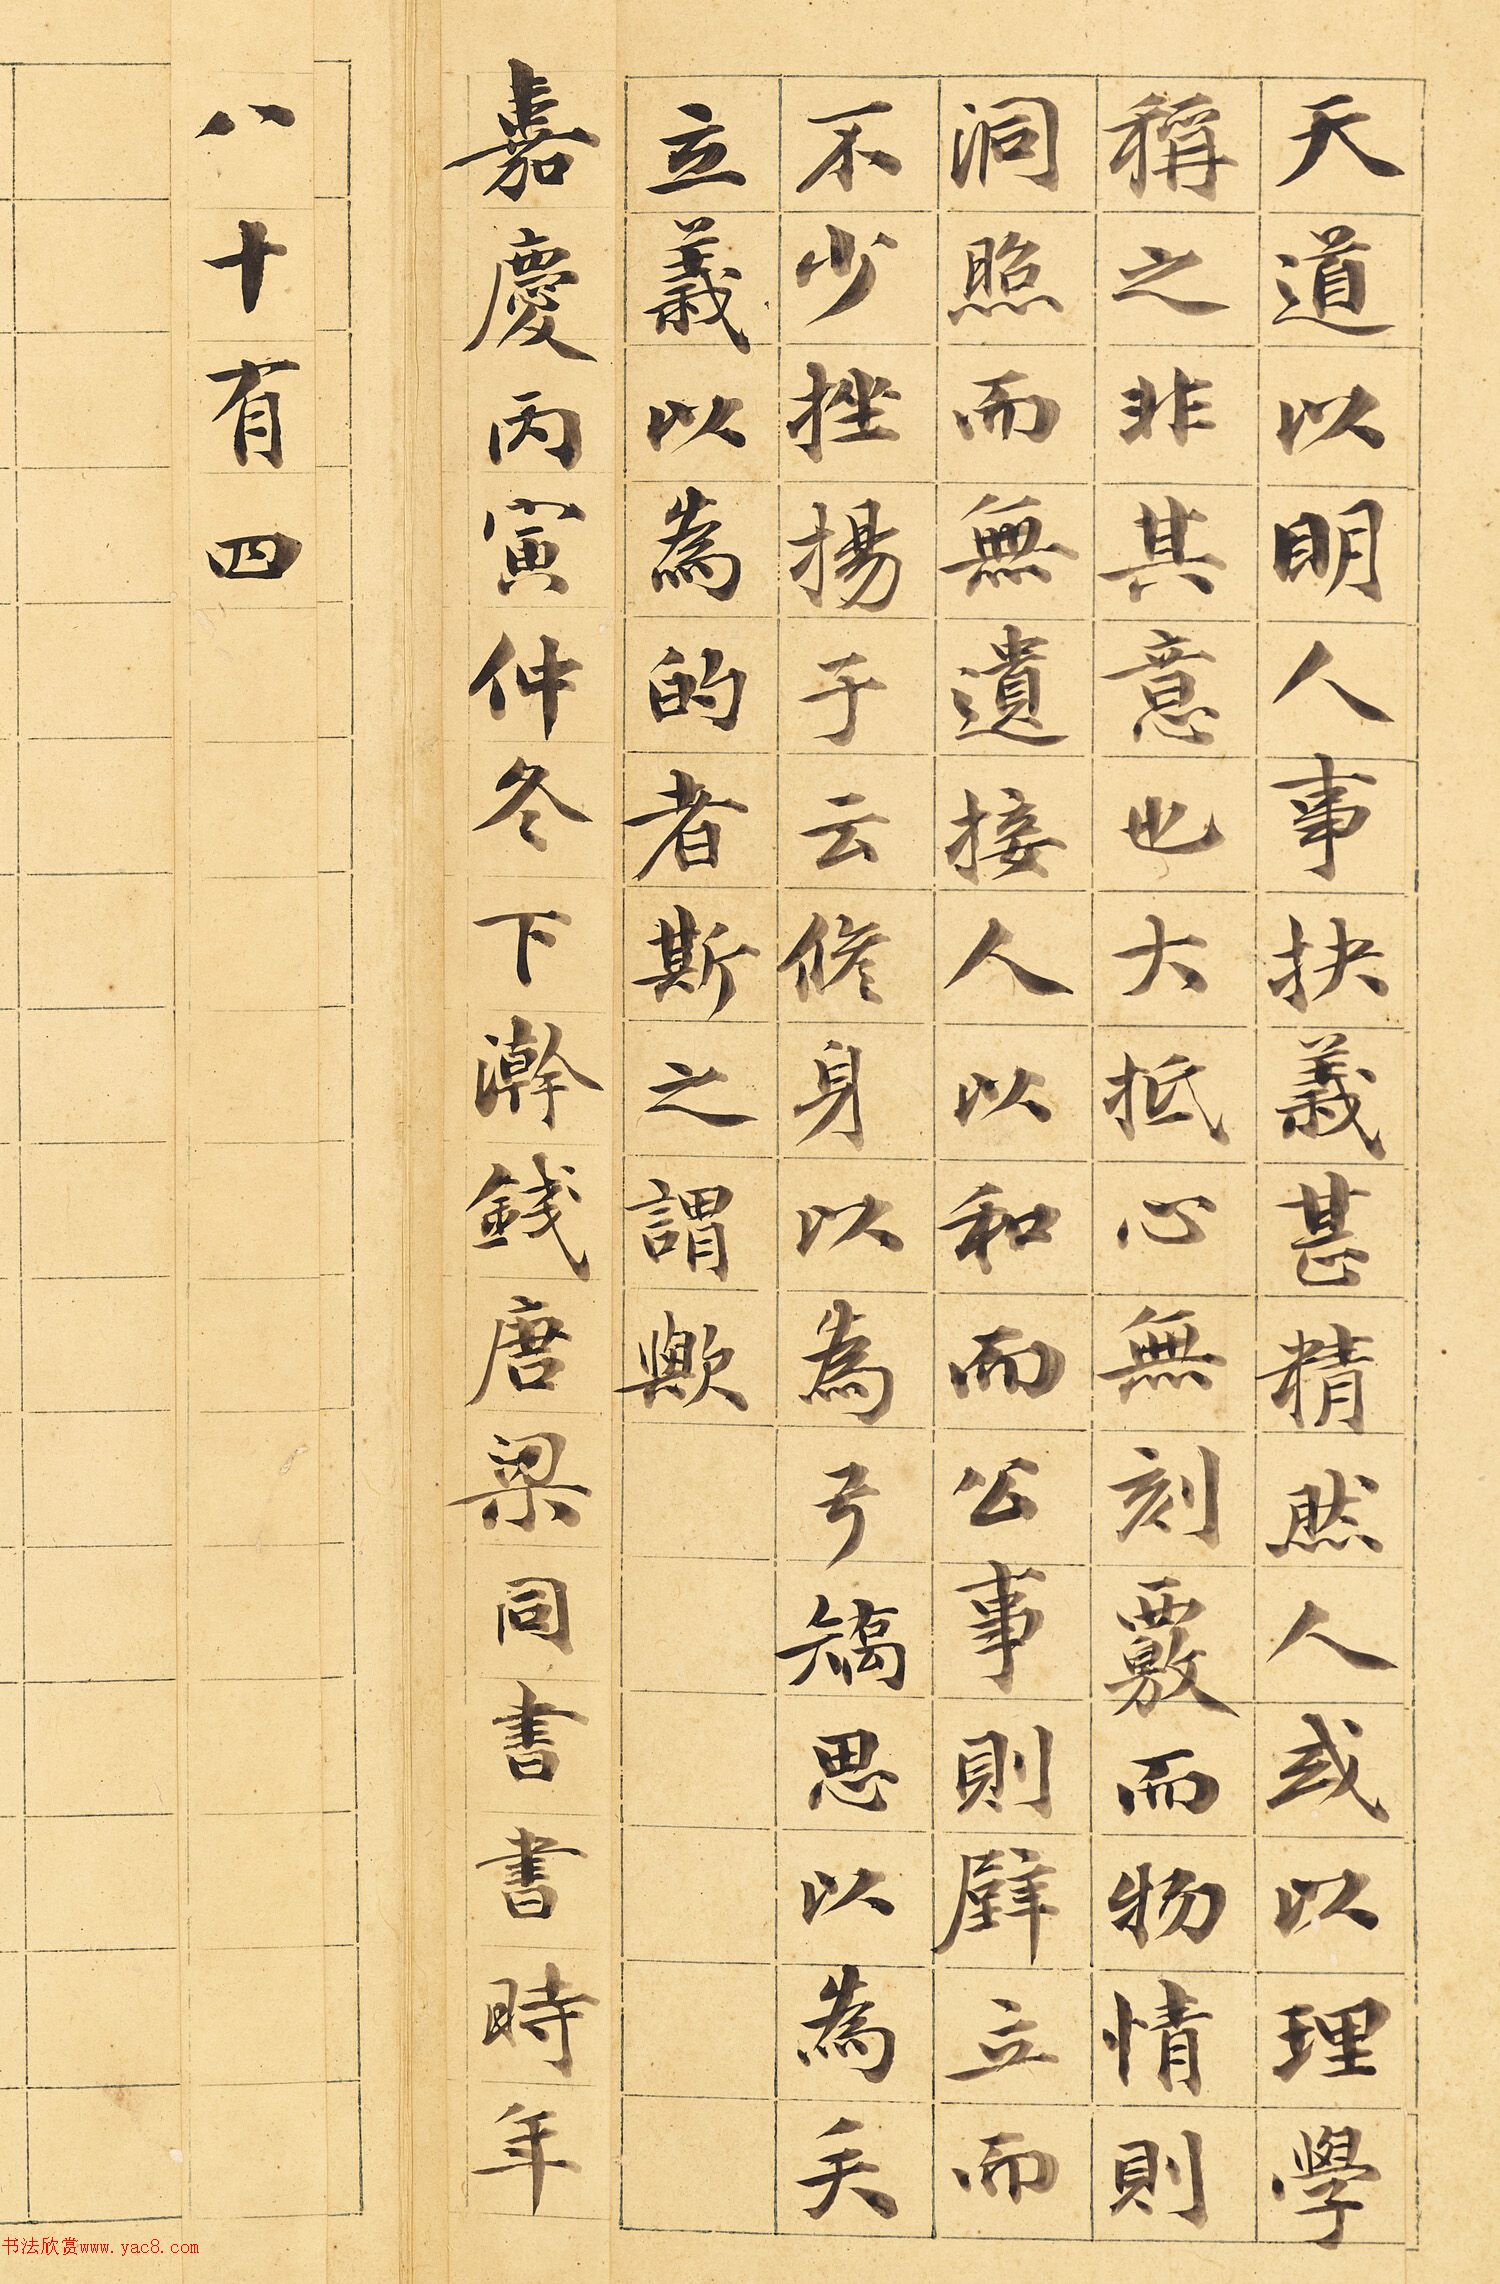 天道以明人事抉義甚精然人或以理學
稱之非其意也大抵心無刻覈而物情則
洞照而無遺接人以和而公事則壁立而
不少挫揚子云修身以為弓矯思以為矢
立義以為的者斯之謂歟
嘉慶丙寅仲冬下澣錢唐梁同書書時年
八十有四
书法欣赏www.yac8.com